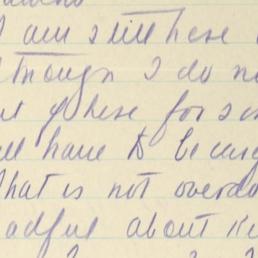 I am still here
though I do no
here for
ll have to be
that is not overd
adful about